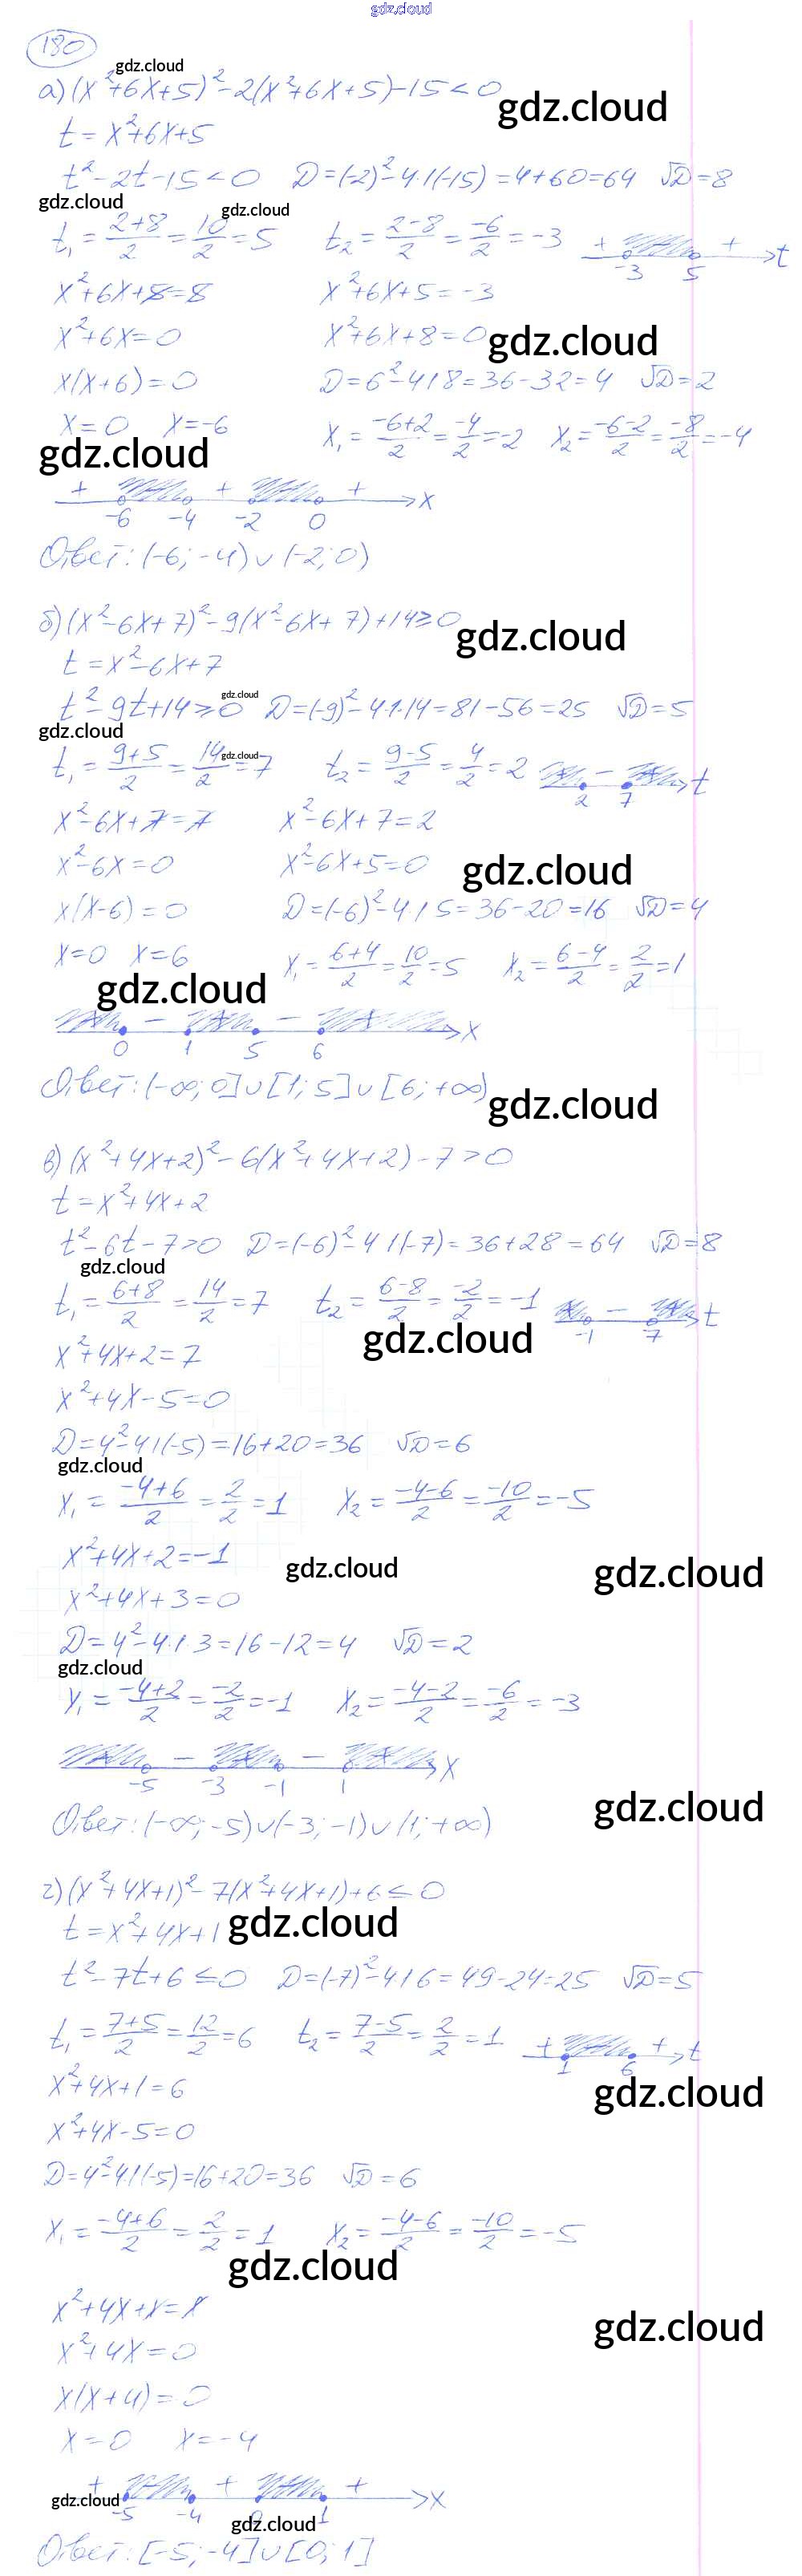 gdz.cloud
180
gdz.cloud
а) (x²+6x+5)²-2(x²+6x+5)-15<0
gdz.cloud
t=x²+6x+5
t²-2t-15<0 D=(-2)²-4·1(-15)=4+60=64 √D=8
gdz.cloud gdz.cloud
t₁=(2+8)/2=10/2=5 t₂=(2-8)/2=-6/2=-3 + - + t
-3 5
x²+6x+5=5 x²+6x+5=-3
x²+6x=0 x²+6x+8=0
gdz.cloud
x(x+6)=0 D=6²-4·1·8=36-32=4 √D=2
x=0 x=-6 x₁=(-6+2)/2=-4/2=-2 x₂=(-6-2)/2=-8/2=-4
gdz.cloud
+ - + - + x
-6 -4 -2 0
Ответ: (-6;-4)∪(-2;0)
б) (x²-6x+7)²-9(x²-6x+7)+14≥0
gdz.cloud
t=x²-6x+7
gdz.cloud
t²-9t+14≥0 D=(-9)²-4·1·14=81-56=25 √D=5
gdz.cloud gdz.cloud
t₁=(9+5)/2=14/2=7 t₂=(9-5)/2=4/2=2 + - + t
2 7
x²-6x+7=7 x²-6x+7=2
x²-6x=0 x²-6x+5=0
gdz.cloud
x(x-6)=0 D=(-6)²-4·1·5=36-20=16 √D=4
x=0 x=6 x₁=(6+4)/2=10/2=5 x₂=(6-4)/2=2/2=1
gdz.cloud
+ - + - + x
0 1 5 6
Ответ: (-∞;0]∪[1;5]∪[6;+∞)
gdz.cloud
в) (x²+4x+2)²-6(x²+4x+2)-7>0
t=x²+4x+2
t²-6t-7>0 D=(-6)²-4·1(-7)=36+28=64 √D=8
gdz.cloud
t₁=(6+8)/2=14/2=7 t₂=(6-8)/2=-2/2=-1 + - + t
-1 7
gdz.cloud
x²+4x+2=7
x²+4x-5=0
D=4²-4·1(-5)=16+20=36 √D=6
gdz.cloud
x₁=(-4+6)/2=2/2=1 x₂=(-4-6)/2=-10/2=-5
x²+4x+2=-1
gdz.cloud gdz.cloud
x²+4x+3=0
D=4²-4·1·3=16-12=4 √D=2
gdz.cloud
x₁=(-4+2)/2=-2/2=-1 x₂=(-4-2)/2=-6/2=-3
+ - + - + x
-5 -3 -1 1
gdz.cloud
Ответ: (-∞;-5)∪(-3;-1)∪(1;+∞)
г) (x²+4x+1)²-7(x²+4x+1)+6≤0
t=x²+4x+1
gdz.cloud
t²-7t+6≤0 D=(-7)²-4·1·6=49-24=25 √D=5
t₁=(7+5)/2=12/2=6 t₂=(7-5)/2=2/2=1 + - + t
1 6
x²+4x+1=6
gdz.cloud
x²+4x-5=0
D=4²-4·1(-5)=16+20=36 √D=6
x₁=(-4+6)/2=2/2=1 x₂=(-4-6)/2=-10/2=-5
gdz.cloud
x²+4x+1=1
gdz.cloud
x²+4x=0
x(x+4)=0
x=0 x=-4
+ - + - + x
gdz.cloud
-5 -4 0 1
gdz.cloud
Ответ: [-5;-4]∪[0;1]